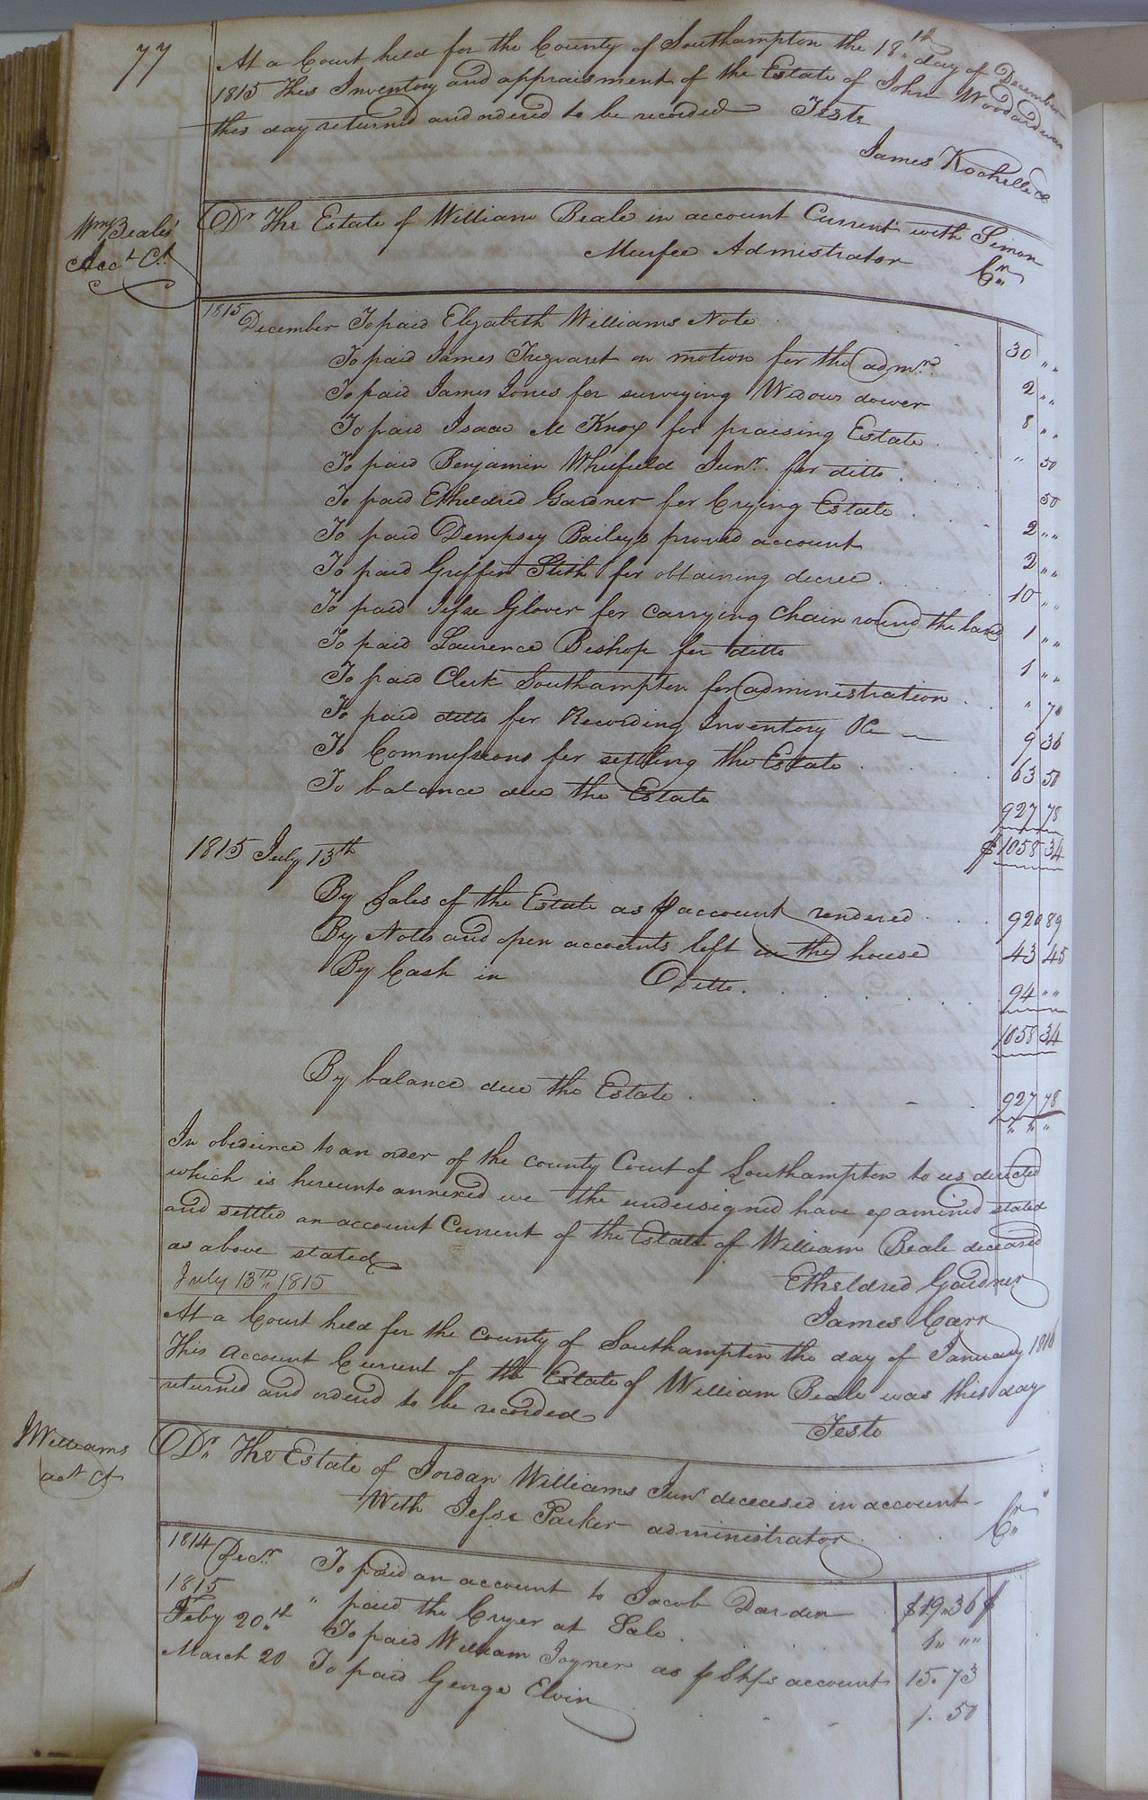 77
At a Court held for the County of Southampton the 18.th day of December
1815 This Inventory and appraisment of the Estate of John Woodard was
this day returned and ordered to be recorded Teste
James Rochelle cc
Wm Beales
Acct Ct
Dr The Estate of William Beale in account Current with Simon
Murfee Admistrator Cr
1815
December To paid Elizabeth Williams Note 30 " "
To paid James Trezvant on motion for the admrn 2 " "
To paid James Jones for surveying Widows dower 8 " "
To paid Isaac M Knox for praising Estate " 50
To paid Benjamin Whitfield Junr. for ditto 50
To paid Etheldred Gardner for Crying Estate 2 " "
To paid Dempsey Baileys proved account 2 " "
To paid Griffin Stith for obtaining decree 10 " "
To paid Jesse Glover for carrying chain round the land 1 " "
To paid Laurence Bishop for ditto 1 " "
To paid Clerk Southampton for administration " 70
To paid ditto for Recording Inventory &c 9 36
To Commissions for settling the Estate 63 50
To balance due the Estate 927 78
$ 1058 34
1815 July 13th
By Sales of the Estate as p account rendered 920 89
By Notes and open accounts left in the house 43 45
By Cash in Ditto 94 " "
1058 34
By balance due the Estate 927 78
In obedience to an order of the county Court of Southampton to us directed
which is hereunto annexed we the undersigned have examined stated
and settled an account Current of the Estate of William Beale deceased
as above stated
July 13TH 1815 Etheldred Gardner
James Carr
At a Court held for the County of Southampton the day of January 1816
This Account Current of the Estate of William Beale was this day
returned and ordered to be recorded
Teste
J Williams
act Ct
Dr. The Estate of Jordan Williams Junr deceased in account
With Jesse Parker administrator Cr
1814 Decr. To paid an account to Jacob Darden $19.36
1815 " paid the Cryer at Sale 1 " "
Feby 20.th To paid William Joyner as p Shfs account 15.73
March 20 To paid George Elvin 1.50